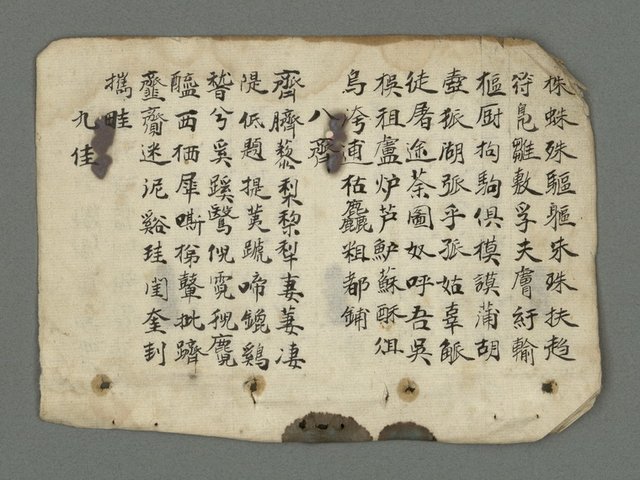 株蛛殊驅軀朱珠扶趋
符鳧雛敷孚夫膚紆輸
樞厨拘駒俱模謨蒲胡
壺瑚湖弧乎孤姑辜觚
徒屠途荼圖奴呼吾吳
租盧炉芦鱸蘇酥徂
烏洿逋枯麤粗都鋪
八齊
齊臍藜梨黎犁妻萋凄
隄低題提荑蹏啼鎞鷄
嵇兮奚蹊鷖倪霓猊麑
醯西栖犀嘶梯鼙批躋
齏齎迷泥谿珪閨奎刲
攜畦
九佳